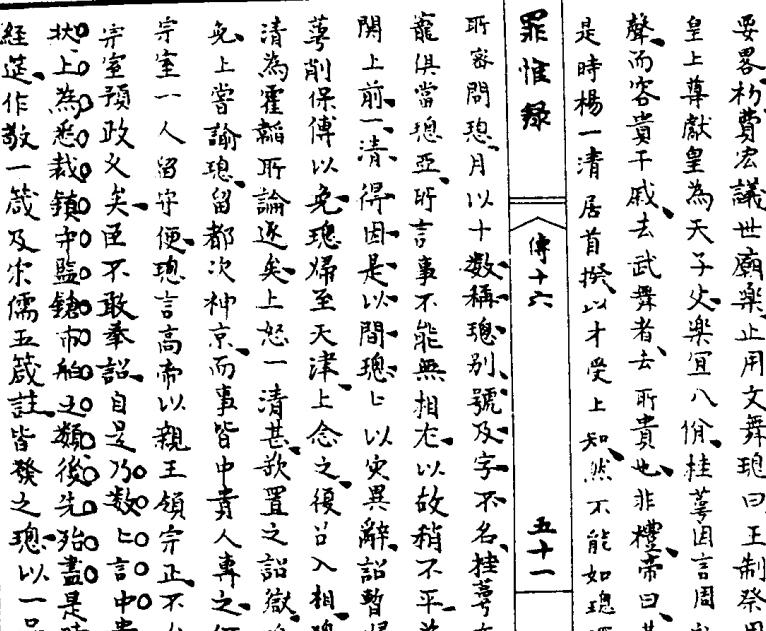 要畧杓費宏議世廟樂止用文舞璁曰王制祭用
皇上尊獻皇為天子父樂宜八佾桂萼因言周
聲而容貴干戚去武舞者去所貴也非禮帝曰
是時楊一清居首揆以才受上知然不能如璁
罪惟録
傳十六
五十一
所密問璁月以十數稱璁別號及字不名桂萼
寵俱當璁亞所言事不能無相左以故稍不平
閒上前一清得因是以間璁上以災異辭詔暫歸
萼削保傅以免璁歸至天津上念之復召入相
清為霍韜所論逐矣上怒一清甚欲置之詔獄
免上嘗諭璁留都次神京而事皆中貴人專之
宗室一人留守便璁言高帝以親王領宗正不
宗室預政乂矣臣不敢奉詔自是乃數上言中貴
狀上為悉裁鎮守監鎗市舶之類後先殆盡是時
經筵作敬一箴及宋儒五箴註皆發之璁以一品